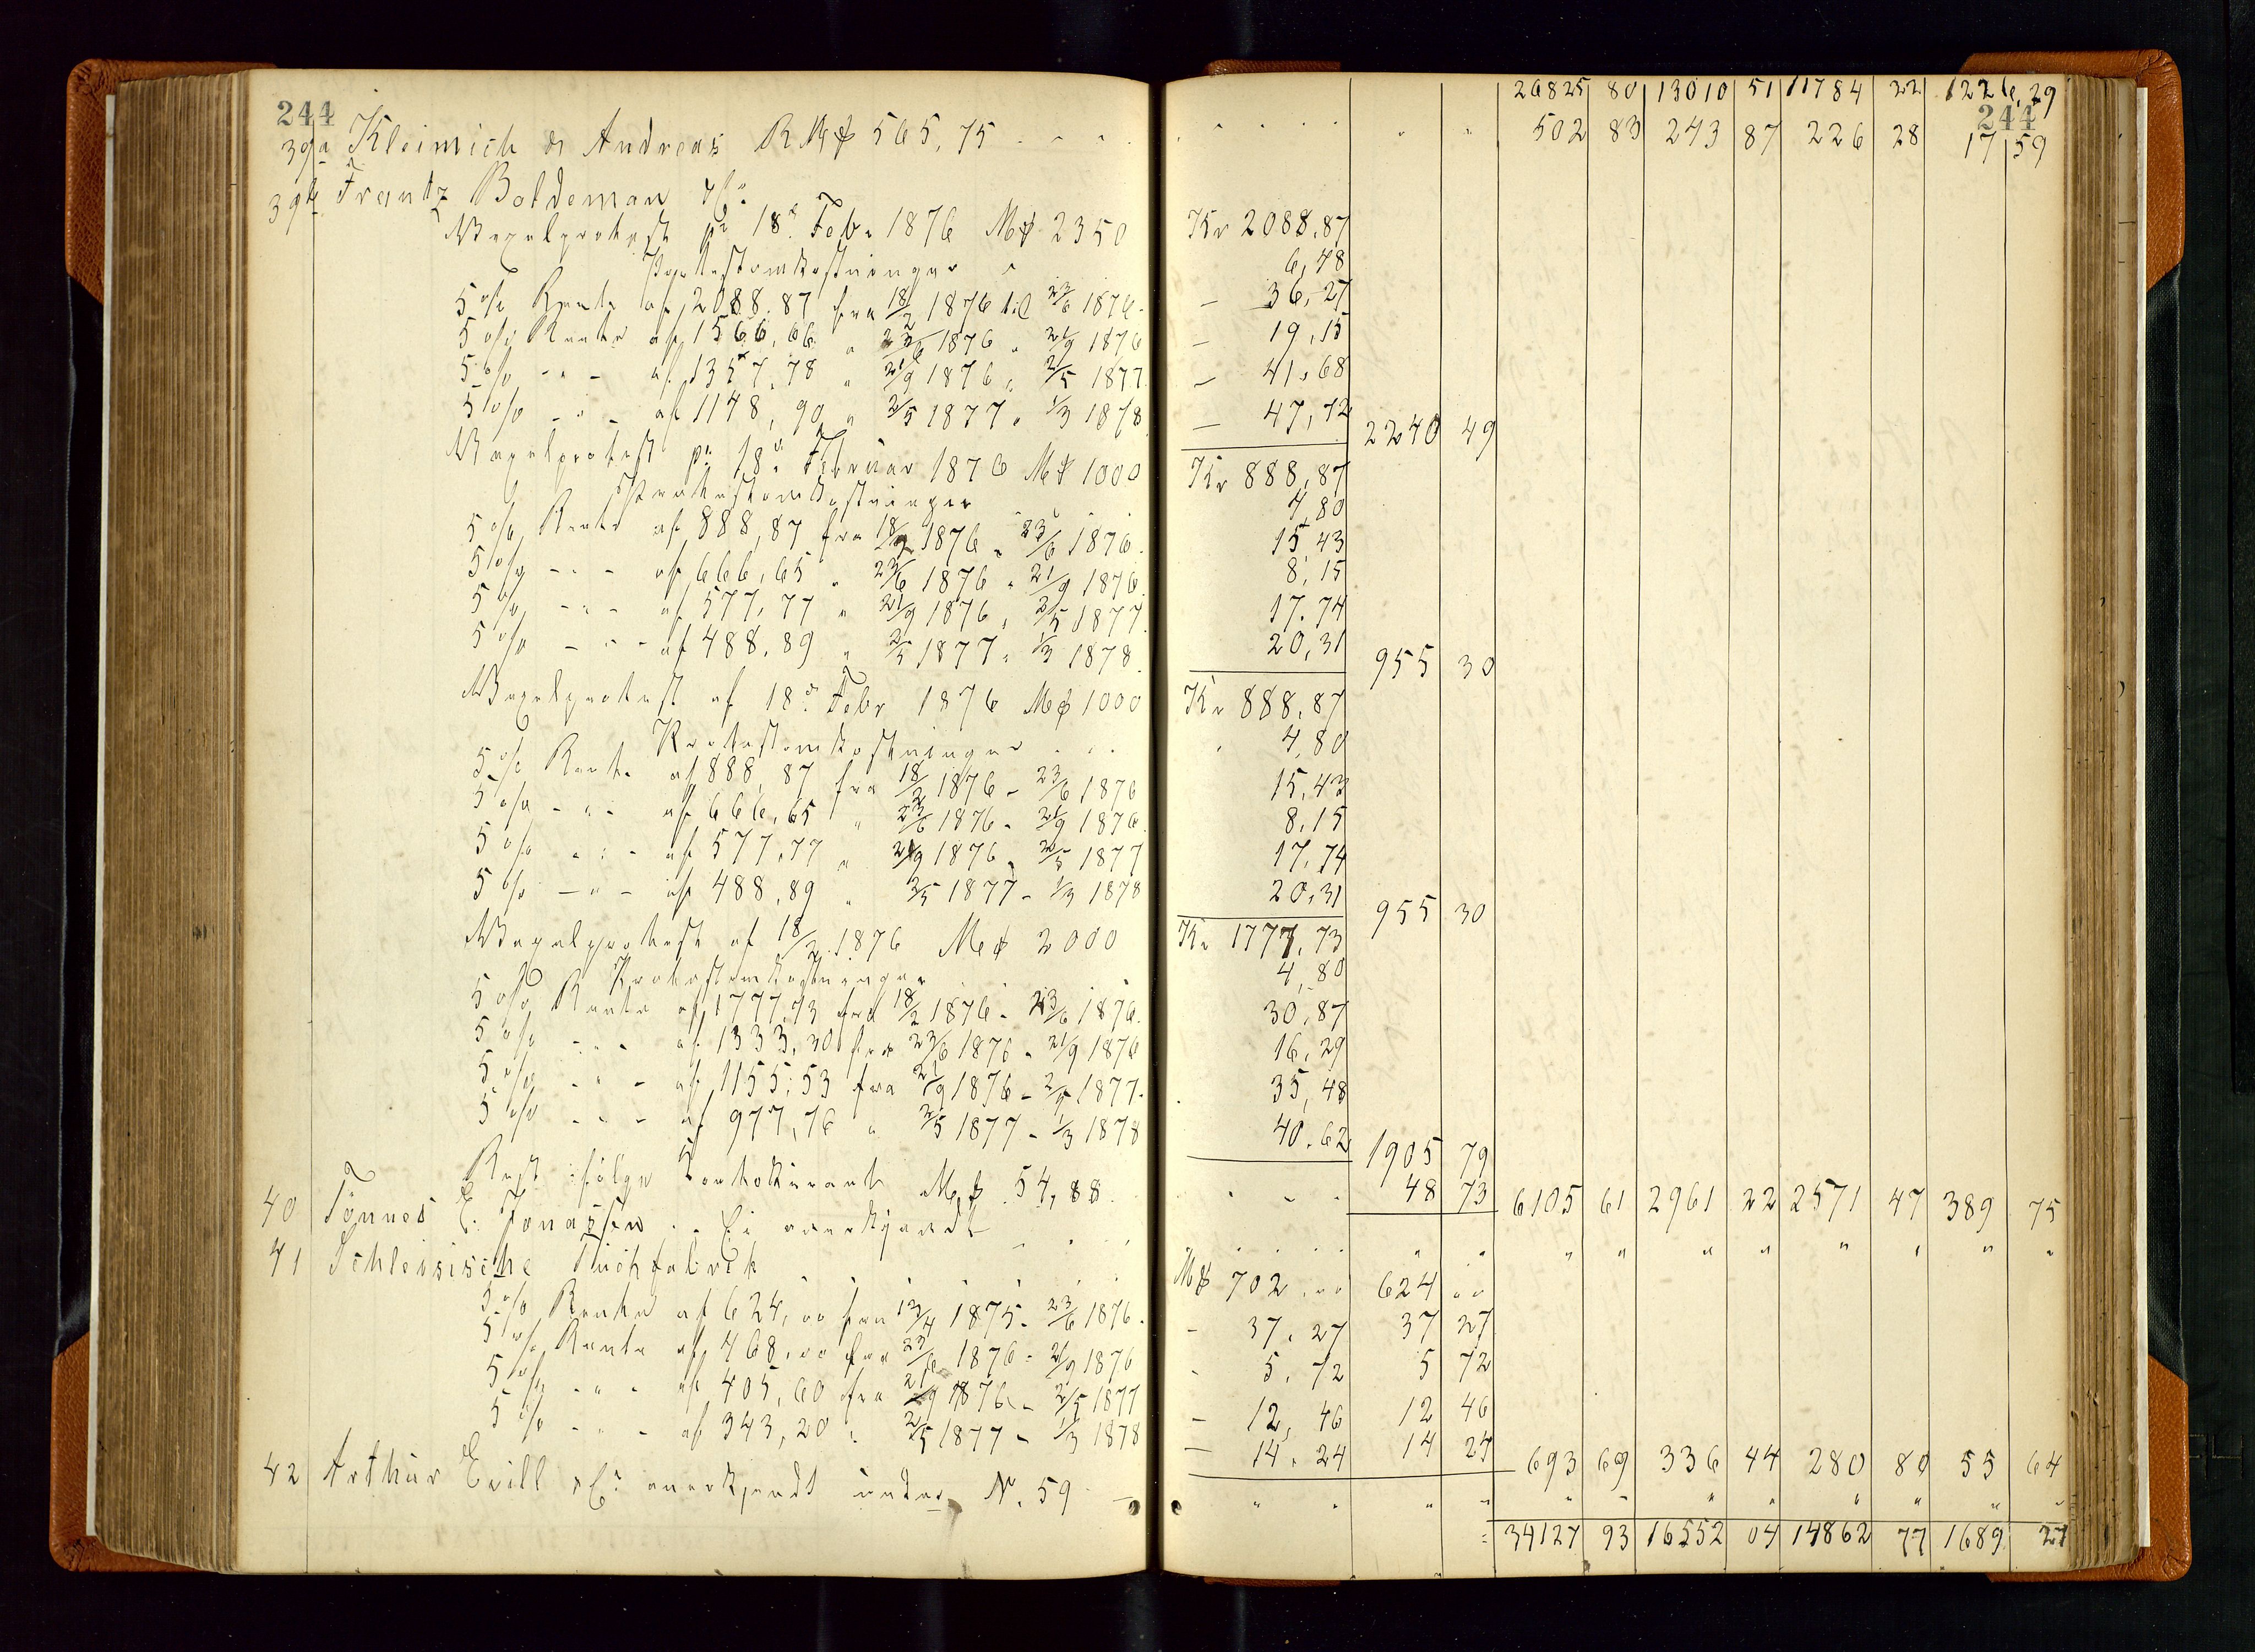 244
26825 80 13010 51 11784 22 1226,29
244
39a Kleimich & Andreas RM₰ 565,75 - - - - - - - " " 502 83 243 87 226 28 17 59
39b Frantz Boldeman & Co
Vexelprotest pr 18de Febr 1876 M₰ 2350 Kr 2088,87
Protestomkostninger " 6,48
5 o/o Rente af 2088.87 fra 18/2 1876 til 23/6 1876 - 36,27
5 o/o Rente af 1566,66 " 23/6 1876 " 21/9 1876 - 19,15
5 o/o - " - af 1357.78 " 21/9 1876 " 2/5 1877 - 41,68
5 o/o - " - af 1148,90 " 2/5 1877 " 1/3 1878 - 47,72 2240 49
Vexelprotest pr 18de Februar 1876 M₰ 1000 Kr 888,87
Protestomkostninger 4,80
5 o/o Rente af 888,87 fra 18/2 1876 " 23/6 1876 15,43
5 o/o - " - af 666,65 " 23/6 1876 " 21/9 1876 8,15
5 o/o - " - af 577,77 " 21/9 1876 " 2/5 1877 17.74
5 o/o - " - af 488,89 " 2/5 1877 " 1/3 1878 20,31 955 30
Vexelprotest af 18de Febr 1876 M₰ 1000 Kr 888,87
Protestomkostninger - - - 4,80
5 o/o Rente af 888,87 fra 18/2 1876 - 23/6 1876 15,43
5 o/o - " - af 666,65 " 23/6 1876 - 21/9 1876 8,15
5 o/o - " - af 577,77 " 21/9 1876 - 2/5 1877 17,74
5 o/o - " - af 488,89 " 2/5 1877 - 1/3 1878 20,31 955 30
Vexelprotest af 18/2 1876 M₰ 2000 Kr 1777,73
Protestomkostninger 4,80
5 o/o Rente af 1777,73 fra 18/2 1876 - 23/6 1876 30,87
5 o/o - " - af 1333,30 fra 23/6 1876 - 21/9 1876 16,29
5 o/o - " - af 1155,53 fra 21/9 1876 - 2/5 1877 35,48
5 o/o - " - af 977,76 " 2/5 1877 - 1/3 1878 40.62 1905 79
Rest ifølge Kontokurant M₰ 54,88 - - - 48 73 6105 61 2961 22 2571 47 389 75
40 Tönnes E. Jonassen .. Ei anerkjendt - - - - " " " " " " " " " "
41 Schlesische Tuchfabrik M₰ 702,00 624 00
5 o/o Rente af 624,00 fra 12/4 1875 - 23/6 1876 - 37.27 37 27
5 o/o Rente af 468,00 fra 23/6 1876 - 21/9 1876 - 5.72 5 72
5 o/o - " - af 405,60 fra 21/9 1876 - 2/5 1877 - 12,46 12 46
5 o/o - " - af 343,20 " 2/5 1877 - 1/3 1878 - 14.24 14 24 693 69 336 44 280 80 55 64
42 Arthur Evill & Co anerkjendt under N. 59 - " " " " " " " " " " " "
34127 93 16552 04 14862 77 1689 27